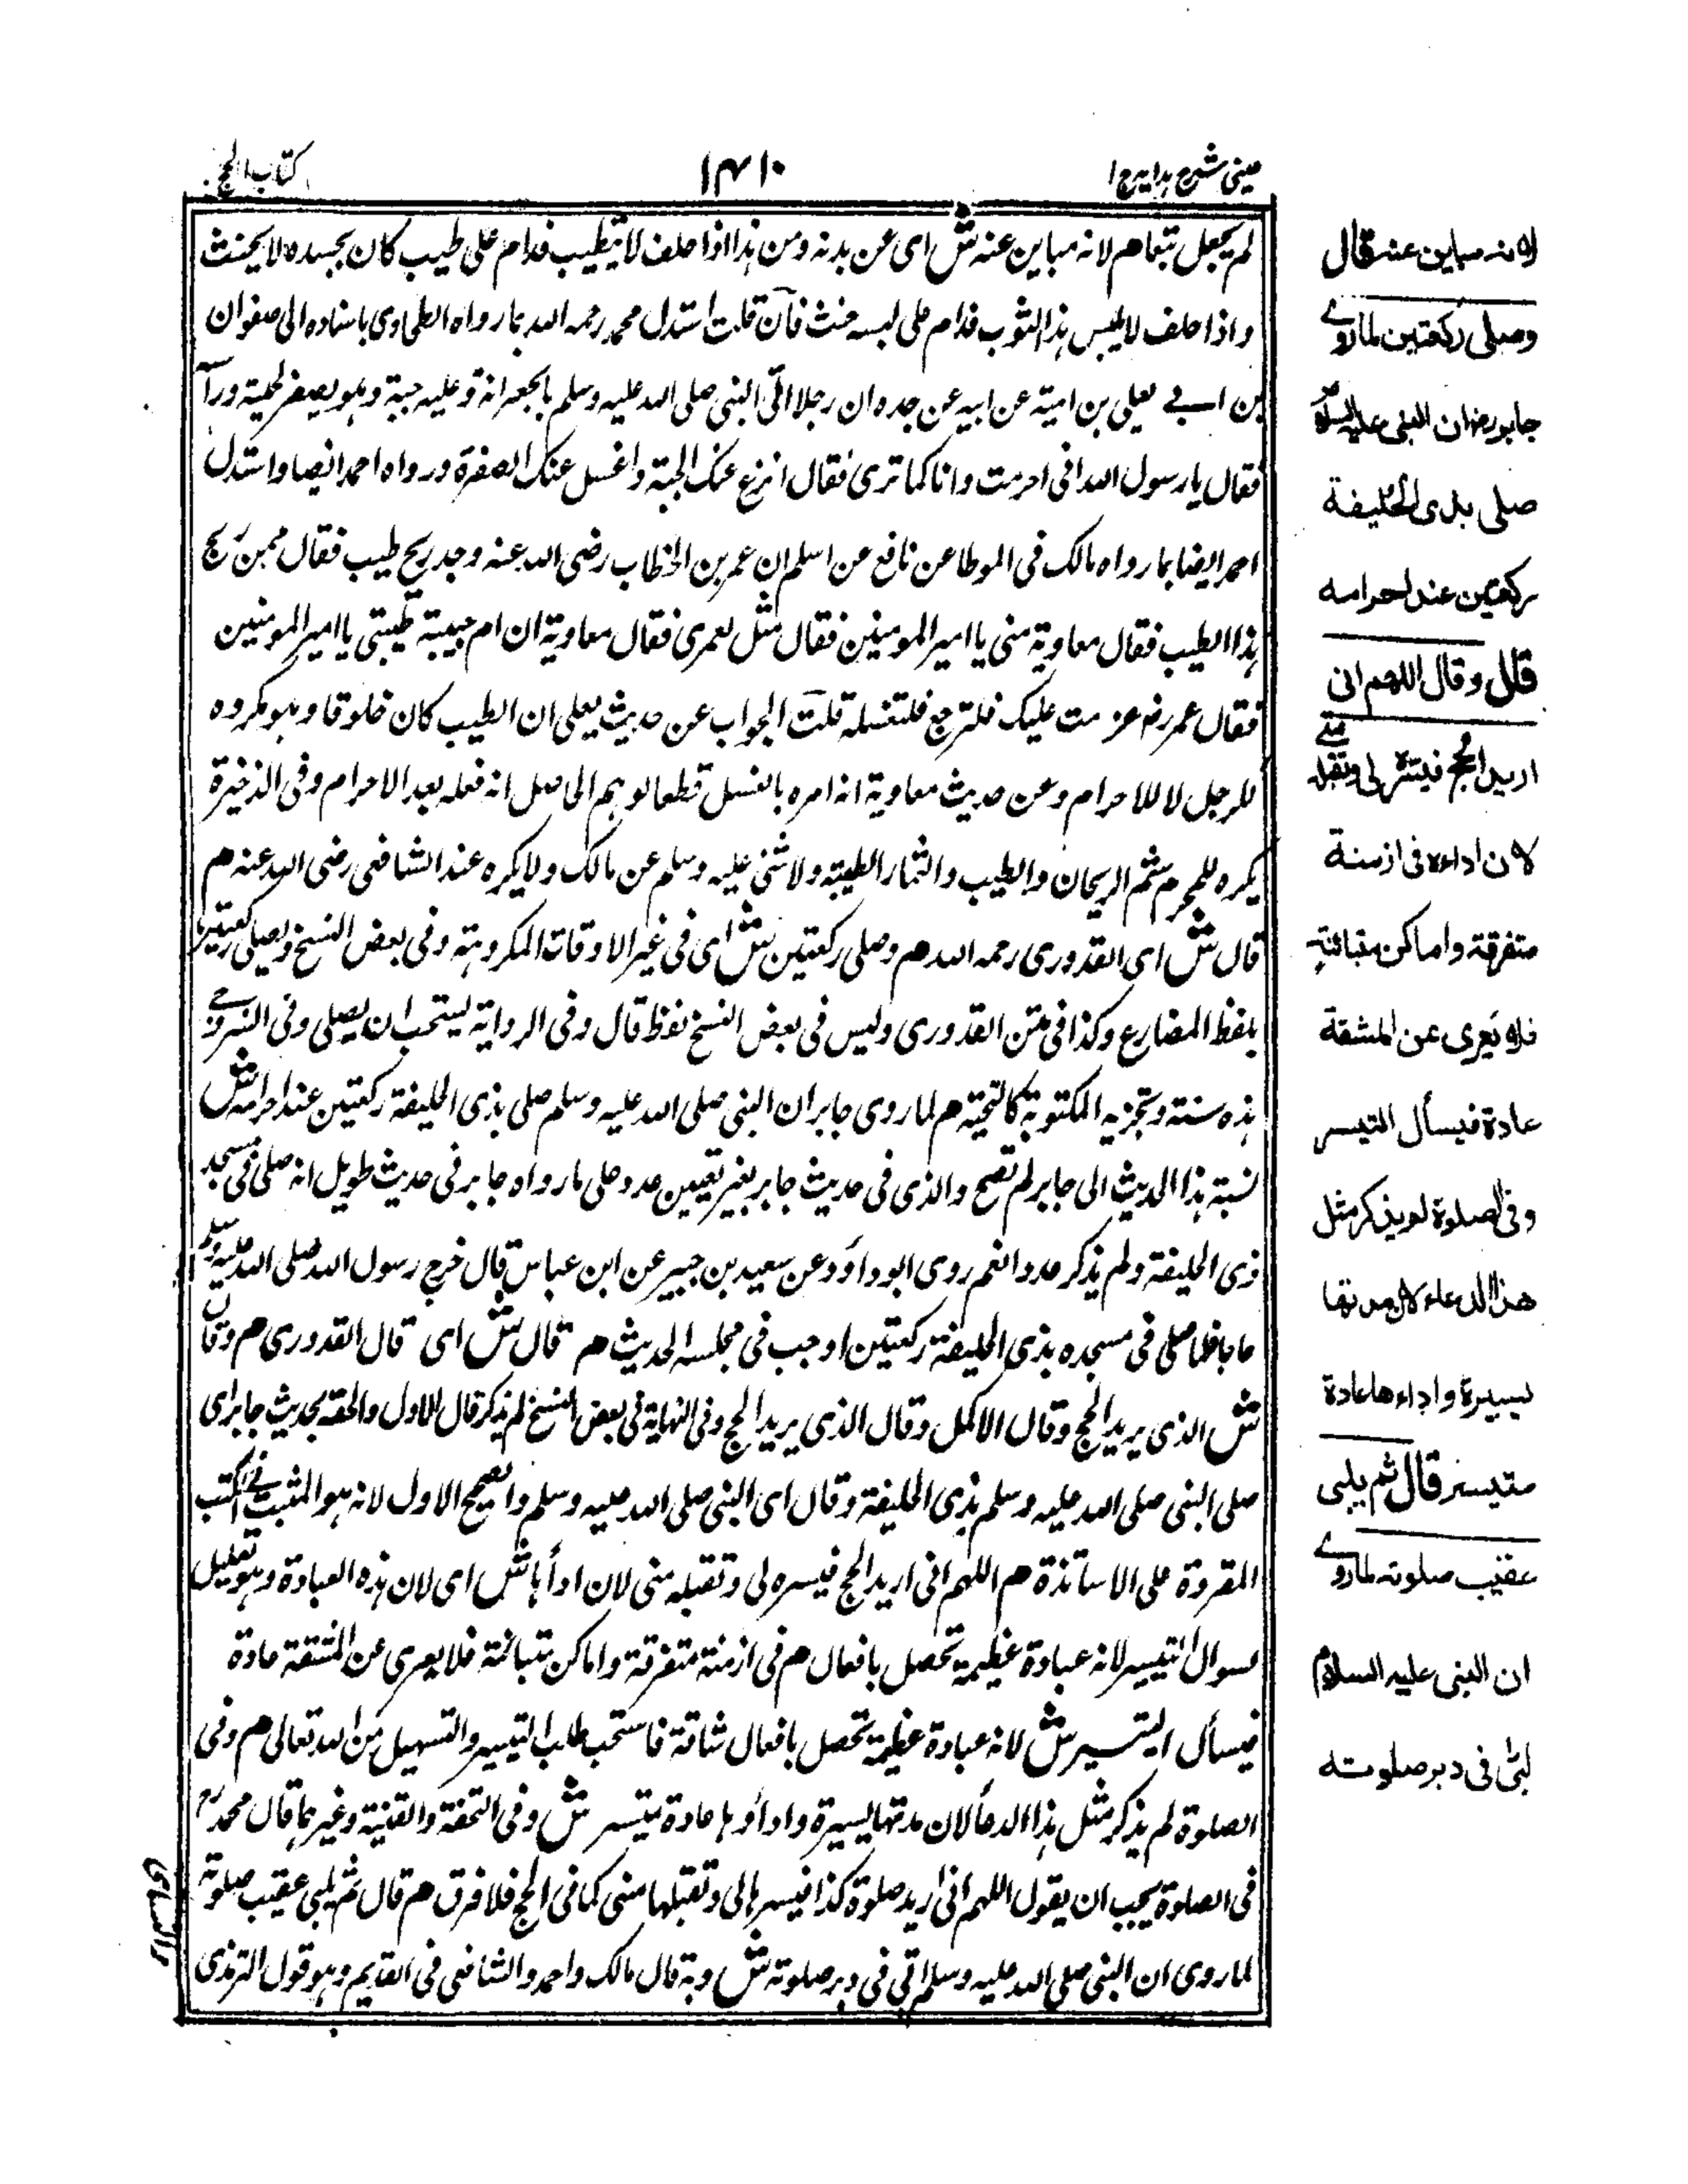 عینی شرح ہدایہ ج ۱
۱۴۱۰
کتاب الحج
لم يجعل تبعا هم لانه مباين عنه ش اى عن بدنه ومن هذا اذا حلف لا يتطيب فدام على طيب كان بجسده لا يحنث
واذا حلف لا يلبس هذا الثوب فدام على لبسه حنث فان قلت استدل محمد رحمه الله بما رواه الطحاوى باسناده الى صفوان
بن يعلى بن امية عن ابيه عن جده ان رجلا اتى النبى صلى الله عليه وسلم بالجعرانة وعليه جبة وهو يصفر لحيته ورأ
فقال يا رسول الله انى احرمت وانا كما ترى فقال انزع عنك الجبة واغسل عنك الصفرة ورواه احمد ايضا واستدل
احمد ايضا بما رواه مالك فى الموطا عن نافع عن اسلم ان عمر بن الخطاب رضى الله عنه وجد ريح طيب فقال ممن ريح
هذا الطيب فقال معاوية منى يا امير المومنين فقال مثل لعمرى فقال معاوية ان ام حبيبة طيبتى يا امير المومنين
فقال عمر رضہ عزمت عليك فلترجع فلتغسله قلت الجواب عن حديث يعلى ان الطيب كان خلوقا وهو مكروه
للرجل لا للاحرام وعن حديث معاوية انه امره بالغسل قطعا لوهم الجاهل انه فعله بعد الاحرام وفى الذخيرة
يكره للمحرم شم الريحان والطيب والثمار الطيبة ولا شئ عليه وسلم عن مالك ولا يكره عند الشافعى رضى الله عنه هم
قال ش اى القدورى رحمه الله هم وصلى ركعتين ش اى فى غير الاوقات المكروهة وفى بعض النسخ ويصلى ركعتين
بلفظ المضارع وكذا فى متن القدورى وليس فى بعض النسخ لفظ قال وفى الرواية يستحب ان يصلى وفى السروجى
هذه سنة وتجزيه المكتوبة كالتحية هم لما روى جابر ان النبى صلى الله عليه وسلم صلى بذى الحليفة ركعتين عند احرامه ش
نسبة هذا الحديث الى جابر لم تصح والذى فى حديث جابر بغير تعيين عدد على ما رواه جابر فى حديث طويل انه صلى فى مسجد
ذى الحليفة ولم يذكر عددا نعم روى ابو داود عن سعيد بن جبير عن ابن عباس قال خرج رسول الله صلى الله عليه وسلم
حاجا فلما صلى فى مسجده بذى الحليفة ركعتين اوجب فى مجلسه الحديث هم قال ش اى قال القدورى هم وقال
ش الذى يريد الحج وقال الاكمل وقال الذى يريد الحج وفى النهاية فى بعض النسخ لم يذكر قال الاول والحقه بحديث جابر اى
صلى النبى صلى الله عليه وسلم بذى الحليفة وقال اى النبى صلى الله عليه وسلم والصحيح الاول لانه هو المثبت فى الكتب
المقروة على الاساتذة هم اللهم انى اريد الحج فيسره لى وتقبله منى لان اداها ش اى لان هذه العبادة وهو تعليل
لسوال التيسير لانه عبادة عظيمة تحصل بافعال هم فى ازمنة متفرقة واماكن متبائنة فلا يعرى عن المشقة عادة
فيسأل التيسير ش لانه عبادة عظيمة تحصل بافعال شاقة فاستحب طلب التيسير والتسهيل من الله تعالى هم وفى
الصلوة لم يذكر مثل هذا الدعاء لان مدتها يسيرة واداؤها عادة متيسر ش وفى التحفة والقنية وغيرهما قال محمد رح
فى الصلوة يجب ان يقول اللهم انى اريد صلوة كذا فيسرها لى وتقبلها منى كما فى الحج فلا فرق هم قال ثم يلبى عقيب صلوته
لما روى ان النبى صلى الله عليه وسلم لبى فى دبر صلوته ش وبه قال مالك واحمد والشافعى فى القديم وهو قول الترمذى
لانه مباين عنه قال
وصلى ركعتين لما روى
جابر رضہ ان النبى عليه السلام
صلى بذى الحليفة
ركعتين عند احرامه
قال وقال اللهم انى
اريد الحج فيسره لى وتقبله منى
لان اداءه فى ازمنة
متفرقة واماكن متبائنة
فلا يعرى عن المشقة
عادة فيسأل التيسير
وفى الصلوة لم يذكر مثل
هذا الدعاء لان مدتها
يسيرة واداءها عادة
متيسر قال ثم يلبى
عقيب صلوته لما روى
ان النبى عليه السلام
لبى فى دبر صلوته